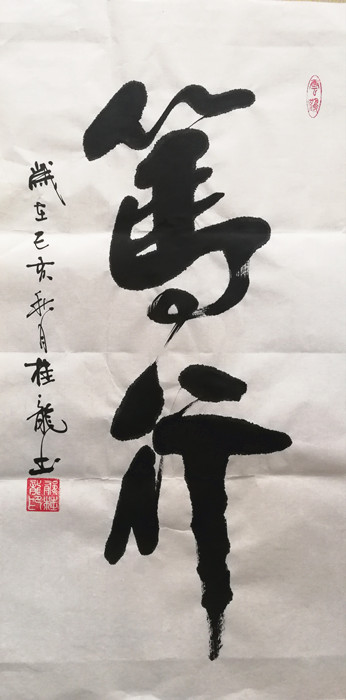 篤行
歲在己亥秋月桂龍书